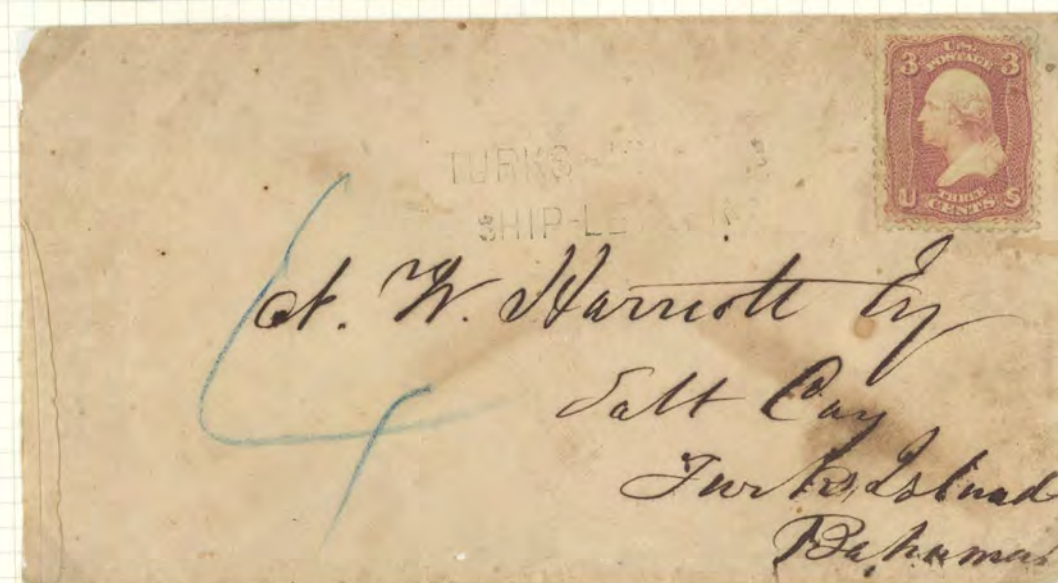 3 U.S. 3
POSTAGE
U THREE S
CENTS
TURKS
SHIP-LE
4
A. W. Harriott Esq
Salt Cay
Turks Island
Bahamas